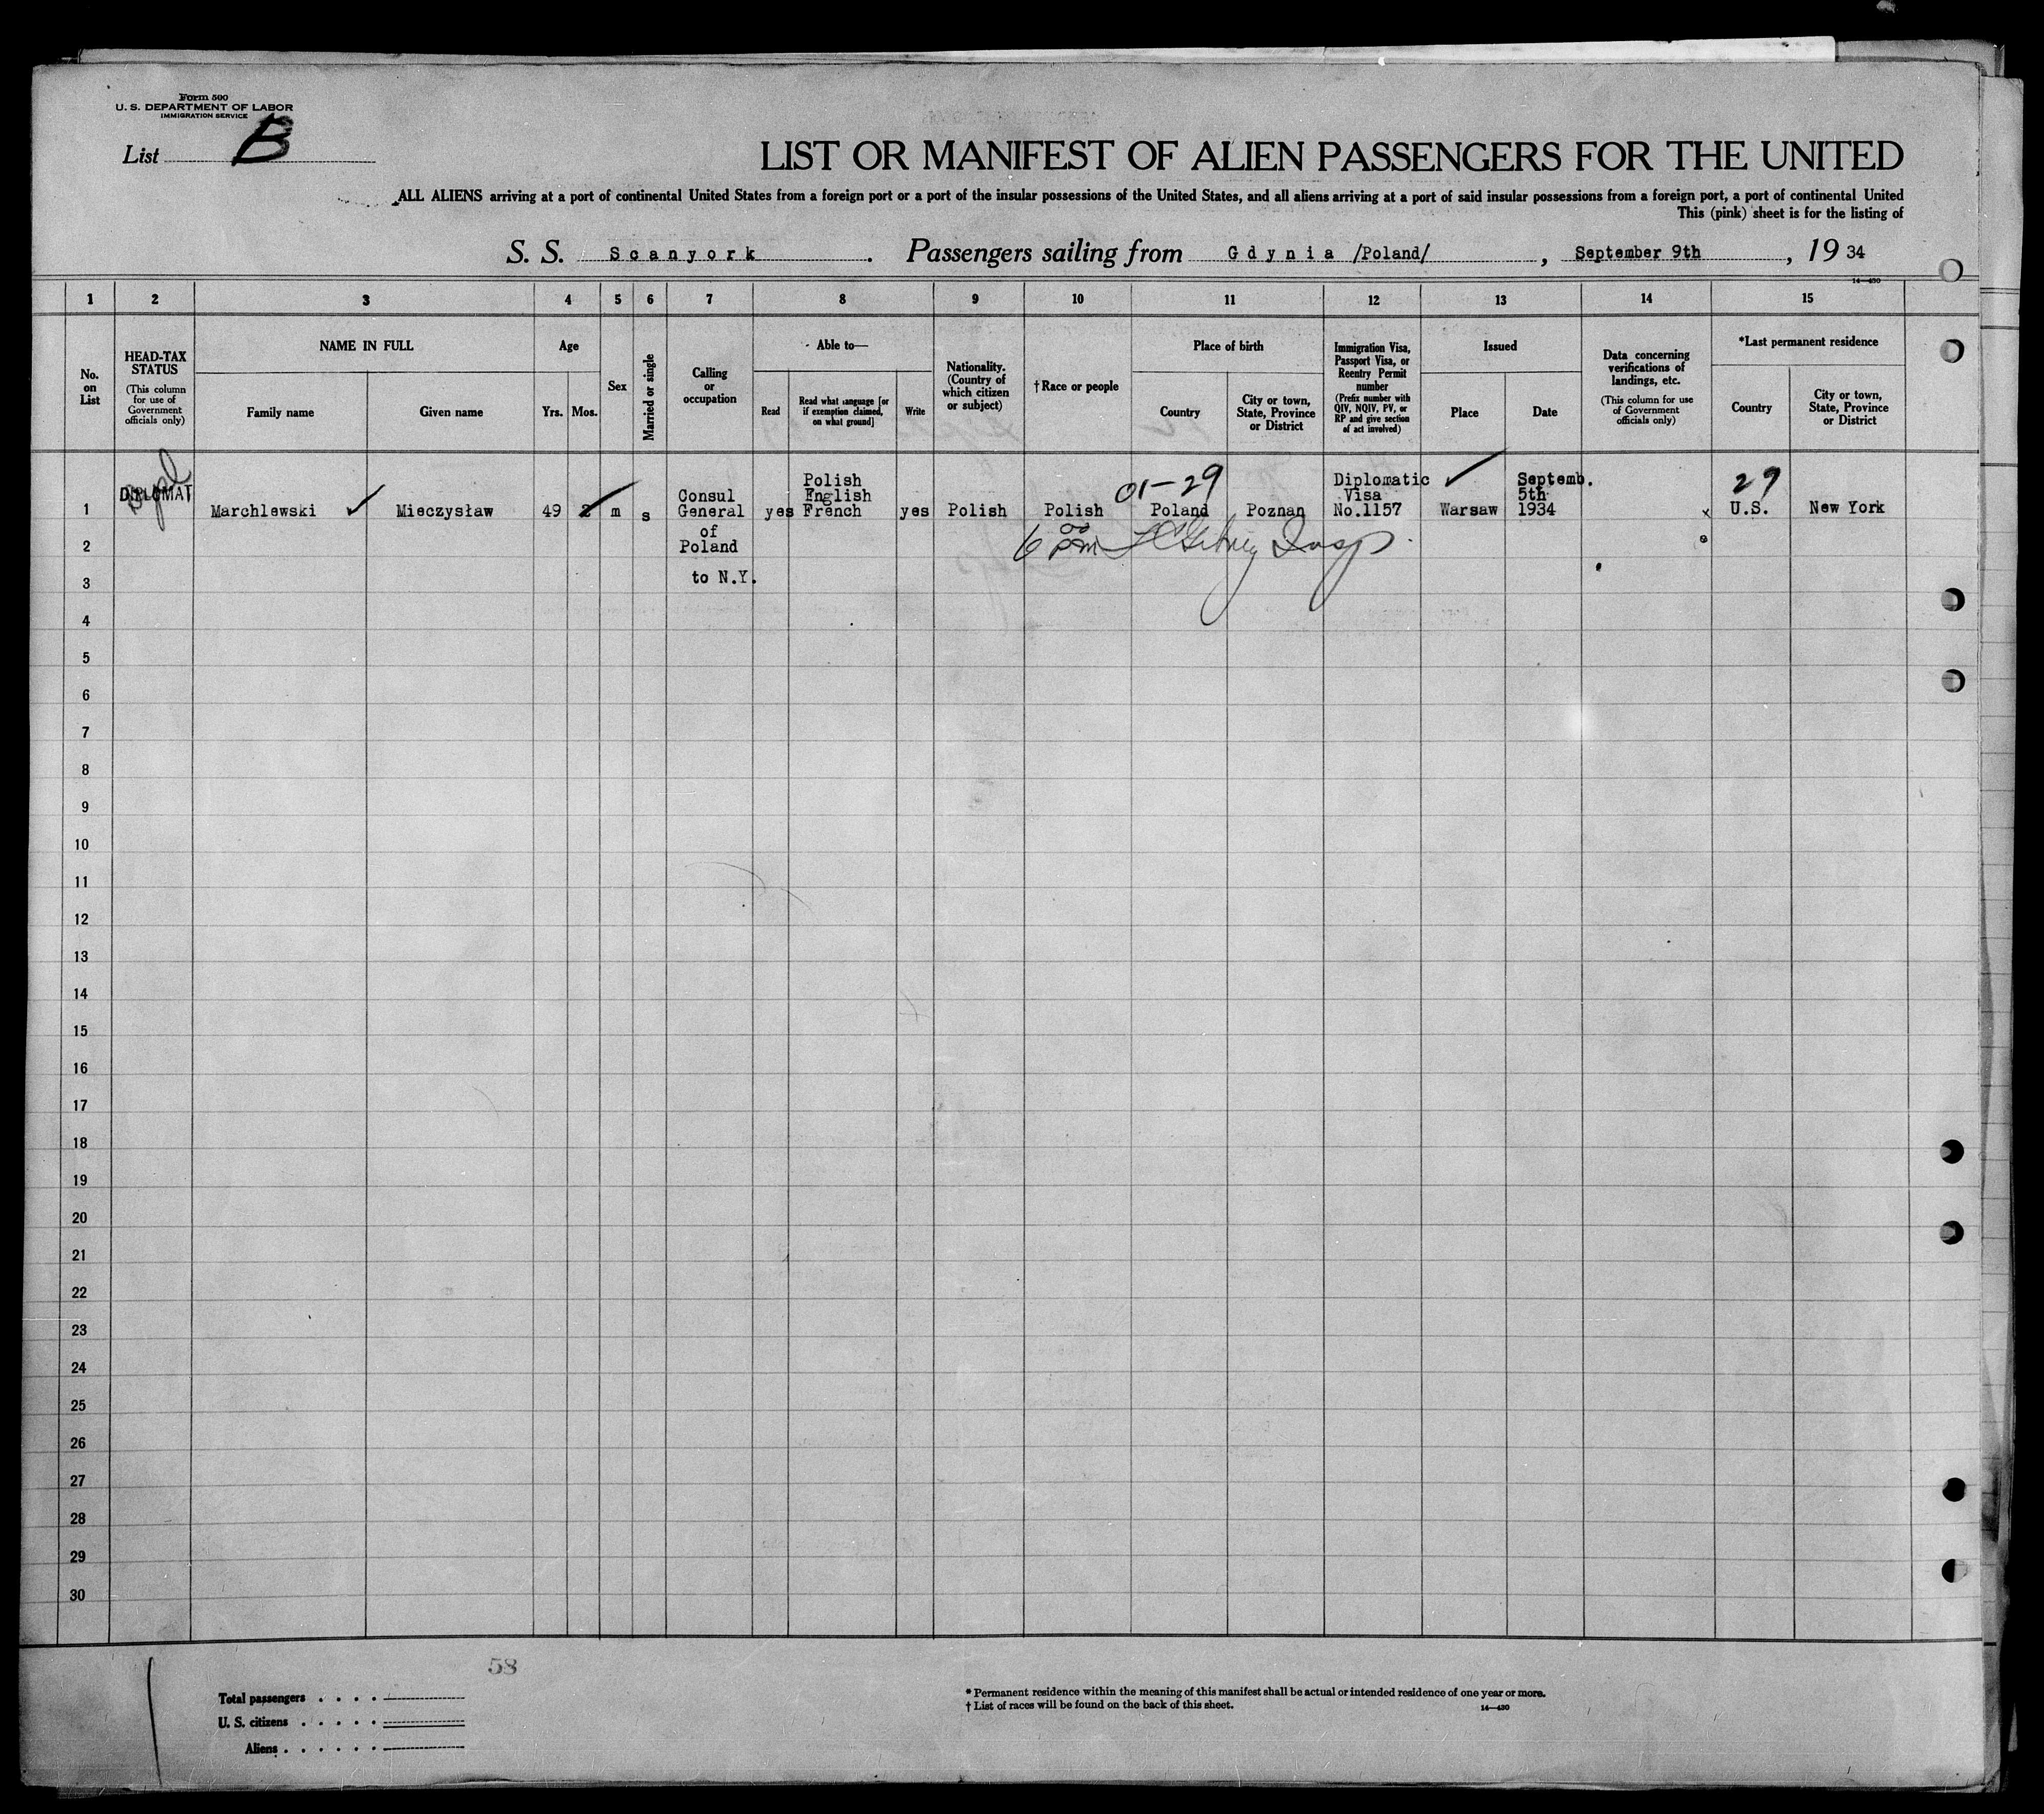 Form 500
U. S. DEPARTMENT OF LABOR
IMMIGRATION SERVICE
List B
LIST OR MANIFEST OF ALIEN PASSENGERS FOR THE UNITED
ALL ALIENS arriving at a port of continental United States from a foreign port or a port of the insular possessions of the United States, and all aliens arriving at a port of said insular possessions from a foreign port, a port of continental United
This (pink) sheet is for the listing of
S. S. Scanyork. Passengers sailing from Gdynia /Poland/, September 9th, 19 34
14—430
1 2 3 4 5 6 7 8 9 10 11 12 13 14 15
No. on List
HEAD-TAX STATUS
(This column for use of Government officials only)
NAME IN FULL
Family name
Given name
Age
Yrs.
Mos.
Sex
Married or single
Calling or occupation
Able to—
Read
Read what language [or if exemption claimed, on what ground]
Write
Nationality. (Country of which citizen or subject)
†Race or people
Place of birth
Country
City or town, State, Province or District
Immigration Visa, Passport Visa, or Reentry Permit number
(Prefix number with QIV, NQIV, PV, or RP and give section of act involved)
Issued
Place
Date
Data concerning verifications of landings, etc.
(This column for use of Government officials only)
*Last permanent residence
Country
City or town, State, Province or District
1
DIPLOMAT
Marchlewski
Mieczysław
49
2
m
s
Consul
General
of
Poland
to N.Y.
yes
Polish
English
French
yes
Polish
Polish
01-29
Poland
Poznan
Diplomatic
Visa
No.1157
Warsaw
Septemb.
5th
1934
x
29
U.S.
New York
6 00 pm
2
3
4
5
6
7
8
9
10
11
12
13
14
15
16
17
18
19
20
21
22
23
24
25
26
27
28
29
30
58
Total passengers
U. S. citizens
Aliens
* Permanent residence within the meaning of this manifest shall be actual or intended residence of one year or more.
† List of races will be found on the back of this sheet.
14—430